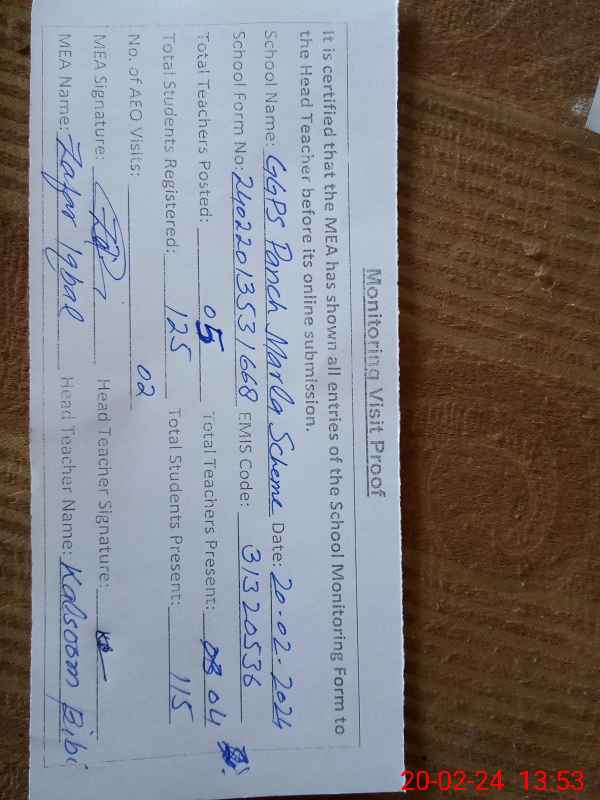 Monitoring Visit Proof
It is certified that the MEA has shown all entries of the School Monitoring Form to
the Head Teacher before its online submission.
School Name: GGPS Panch Marla Scheme Date: 20-02-2024
School Form No: 24022013531668 EMIS Code: 31320536
Total Teachers Posted: 05 Total Teachers Present: 04
Total Students Registered: 125 Total Students Present: 115
No. of AEO Visits: 02
MEA Signature: Head Teacher Signature:
MEA Name: Zafar Iqbal Head Teacher Name: Kalsoom Bibi
20-02-24 13:53